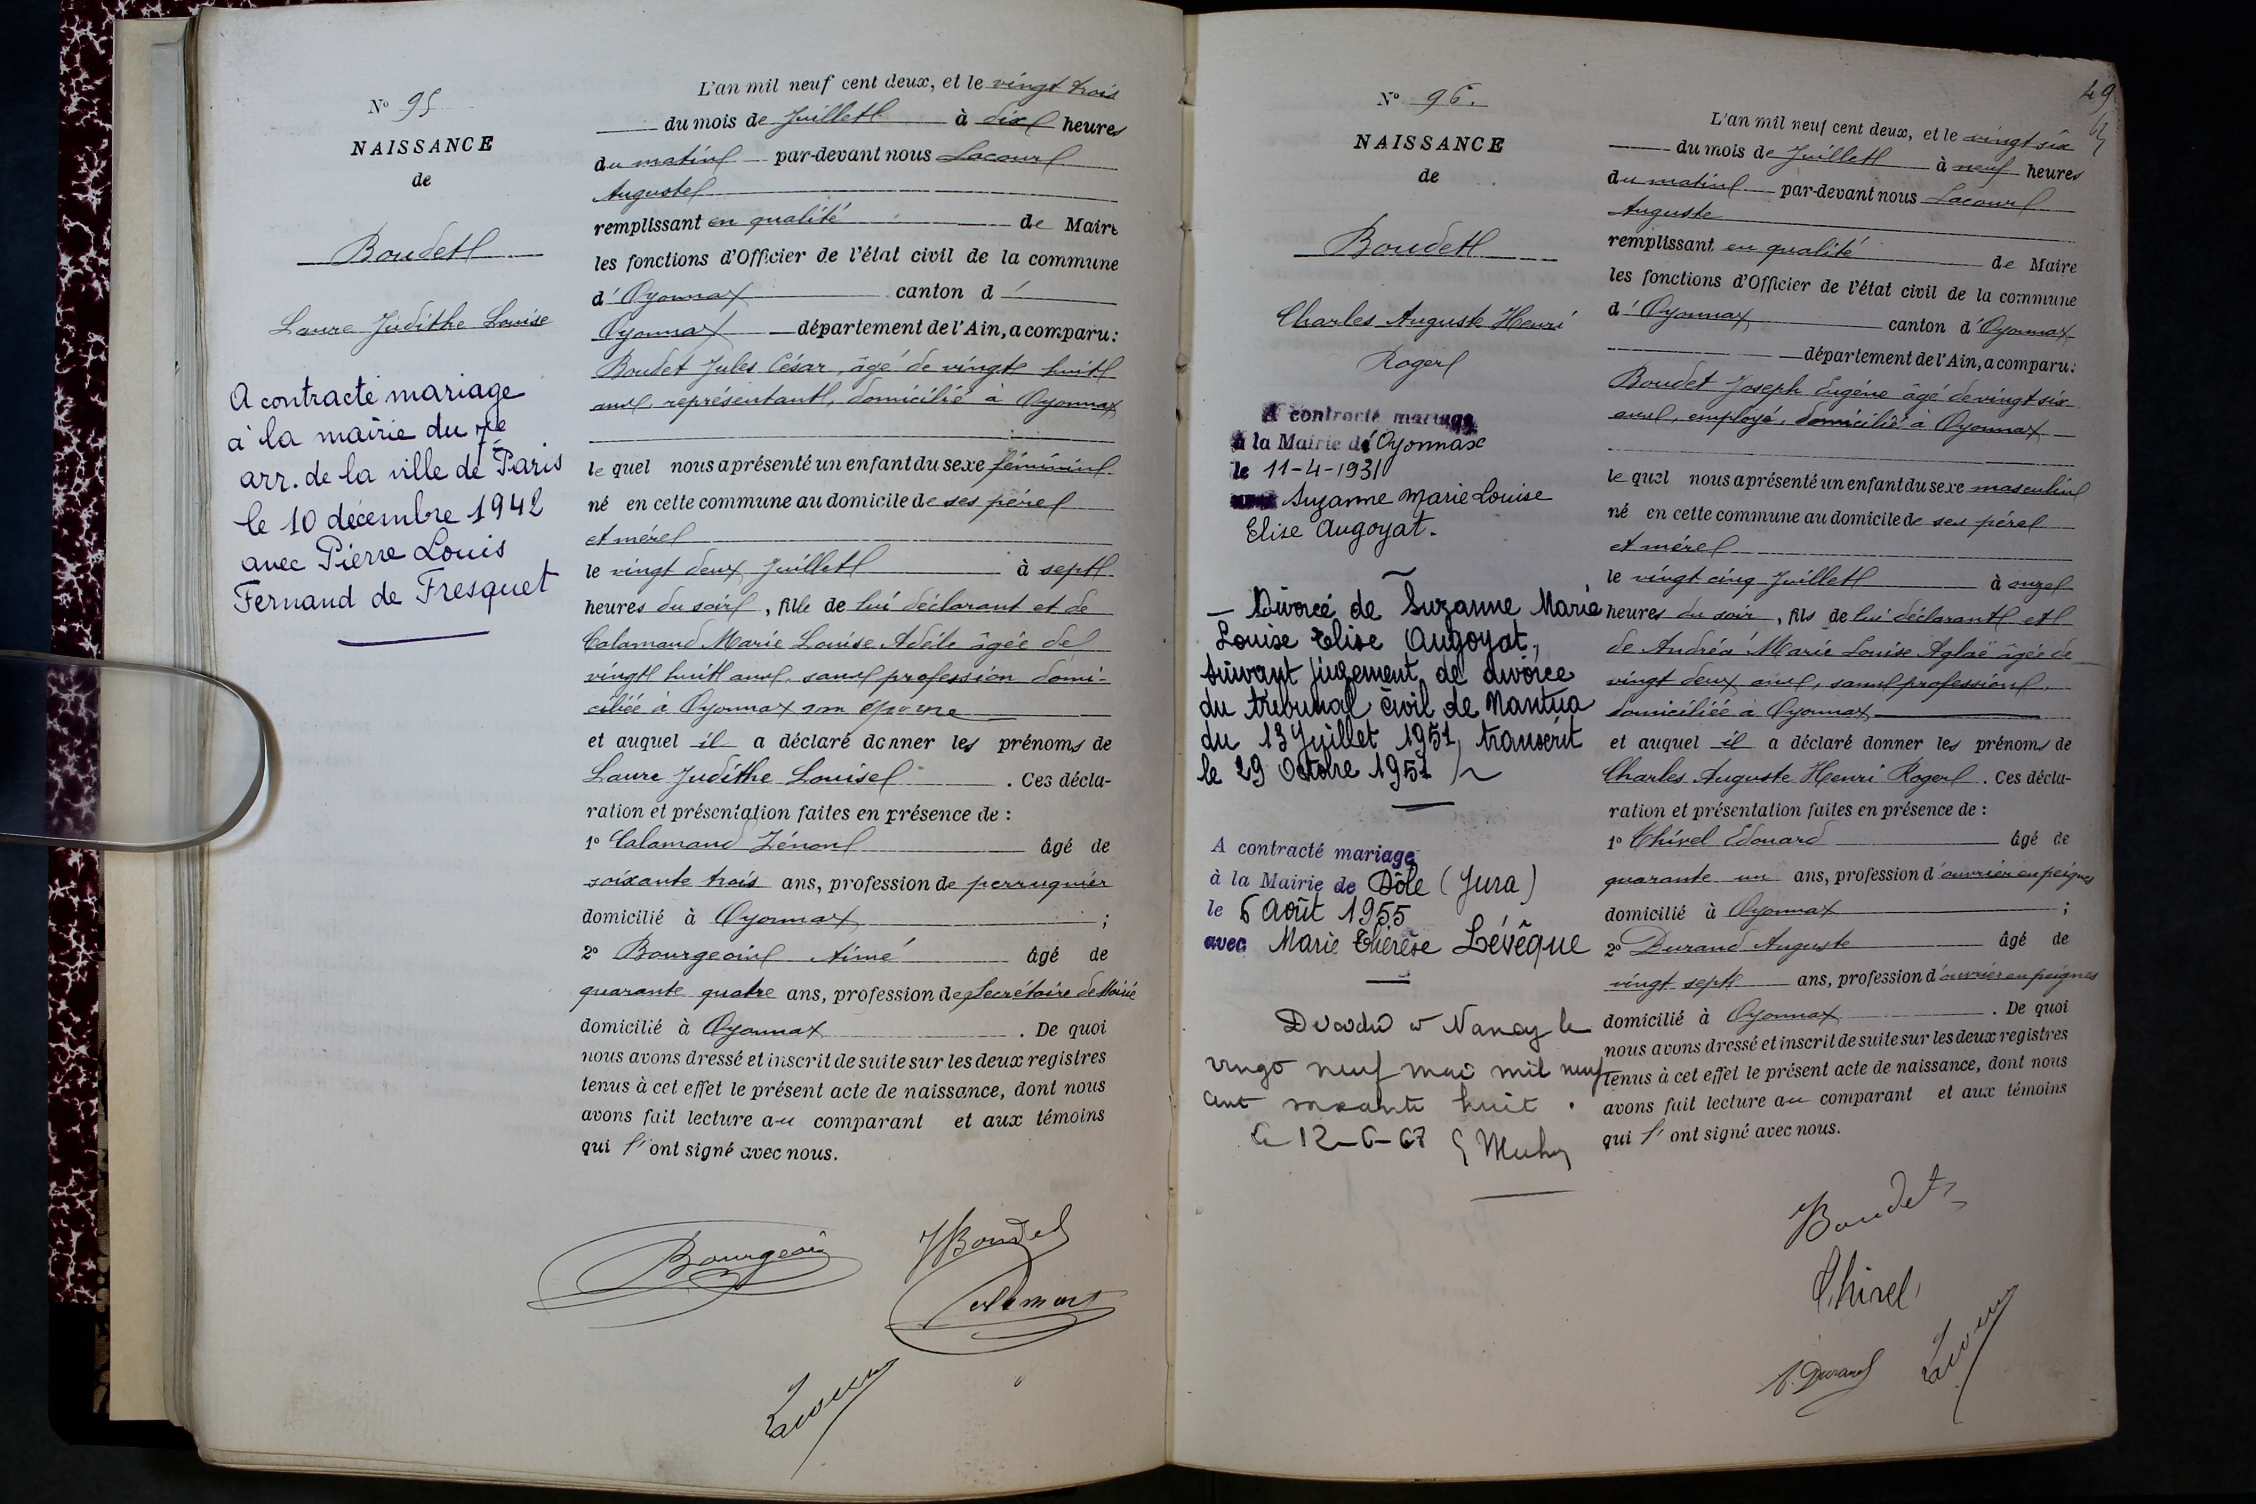 N° 95
NAISSANCE
de
Boudet
Laure Judithe Louise
A contracté mariage
à la mairie du 7e
arr. de la ville de Paris
le 10 décembre 1942
avec Pierre Louis
Fernand de Fresquet
L'an mil neuf cent deux, et le vingt trois
du mois de Juillet à dix heures
du matin par-devant nous Lacour
Auguste
remplissant en qualité de Maire
les fonctions d'Officier de l'état civil de la commune
d'Oyonnax canton d'
Oyonnax département de l'Ain, a comparu:
Boudet Jules César, âgé de vingt huit
ans, représentant, domicilié à Oyonnax
le quel nous a présenté un enfant du sexe féminin
né en cette commune au domicile de ses père
et mère
le vingt deux Juillet à sept
heures du soir, fille de lui déclarant et de
Calamand Marie Louise Adèle âgée de
vingt huit ans, sans profession domi-
ciliée à Oyonnax son épouse
et auquel il a déclaré donner les prénoms de
Laure Judithe Louise. Ces décla-
ration et présentation faites en présence de :
1° Calamand Zénon âgé de
soixante trois ans, profession de perruquier
domicilié à Oyonnax ;
2° Bourgeois Aimé âgé de
quarante quatre ans, profession de Secrétaire de Mairie
domicilié à Oyonnax. De quoi
nous avons dressé et inscrit de suite sur les deux registres
tenus à cet effet le présent acte de naissance, dont nous
avons fait lecture au comparant et aux témoins
qui l'ont signé avec nous.
Bourgeois
JBoudet
Calamand
Lacour
49
N° 96.
NAISSANCE
de
Boudet
Charles Auguste Henri
Roger
A contracté mariage
à la Mairie d'Oyonnax
le 11-4-1931
Suzanne Marie Louise
Elise Augoyat.
— Divorcé de Suzanne Marie
Louise Elise Augoyat,
suivant jugement de divorce
du tribunal civil de Nantua
du 13 Juillet 1951, transcrit
le 29 Octobre 1951
A contracté mariage
à la Mairie de Dôle (Jura)
le 6 Août 1955
avec Marie Thérèse Lévêque
Décédé à Nancy le
vingt neuf mai mil neuf
cent soixante huit.
Le 12-6-68
L'an mil neuf cent deux, et le vingt six
du mois de Juillet à neuf heures
du matin par-devant nous Lacour
Auguste
remplissant en qualité de Maire
les fonctions d'Officier de l'état civil de la commune
d'Oyonnax canton d'Oyonnax
département de l'Ain, a comparu:
Boudet Joseph Eugène âgé de vingt six
ans, employé, domicilié à Oyonnax
le quel nous a présenté un enfant du sexe masculin
né en cette commune au domicile de ses père
et mère
le vingt cinq Juillet à onze
heures du soir, fils de lui déclarant et
de Andréa Marie Louise Aglaé âgée de
vingt deux ans, sans profession,
domiciliée à Oyonnax
et auquel il a déclaré donner les prénoms de
Charles Auguste Henri Roger. Ces décla-
ration et présentation faites en présence de :
1° Chirel Edouard âgé de
quarante un ans, profession d'ouvrier en peignes
domicilié à Oyonnax ;
2° Durand Auguste âgé de
vingt sept ans, profession d'ouvrier en peignes
domicilié à Oyonnax. De quoi
nous avons dressé et inscrit de suite sur les deux registres
tenus à cet effet le présent acte de naissance, dont nous
avons fait lecture au comparant et aux témoins
qui l'ont signé avec nous.
Boudet
Chirel
A. Durand
Lacour